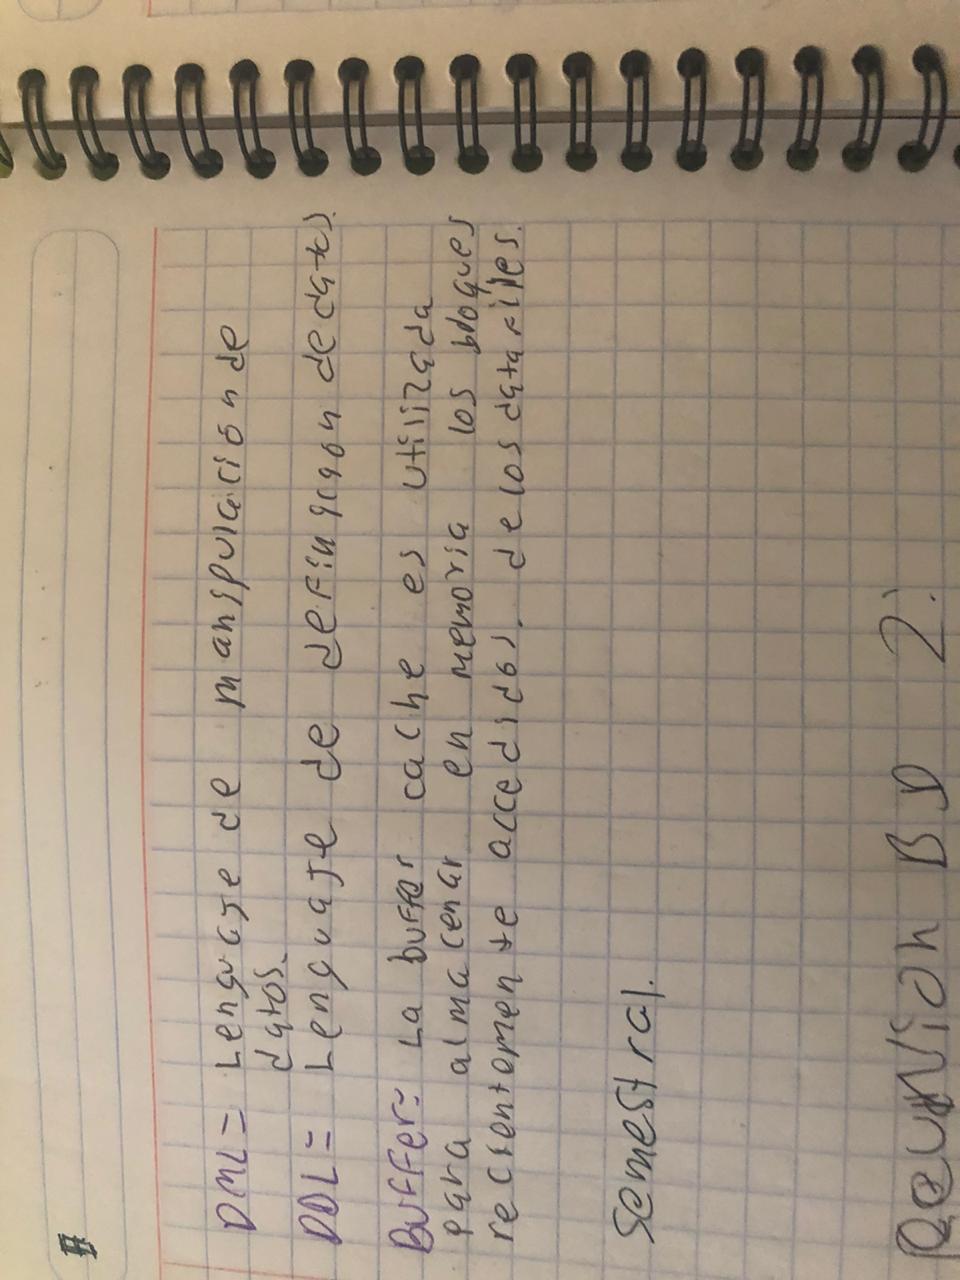 DML= Lenguaje de manipulación de
datos.
DDL= Lenguaje de definición de datos.
Buffer= La buffer cache es utilizada
para almacenar en memoria los bloques
recientemente accedidos, de los datafiles.
Semestral.
Reunion BD 2.